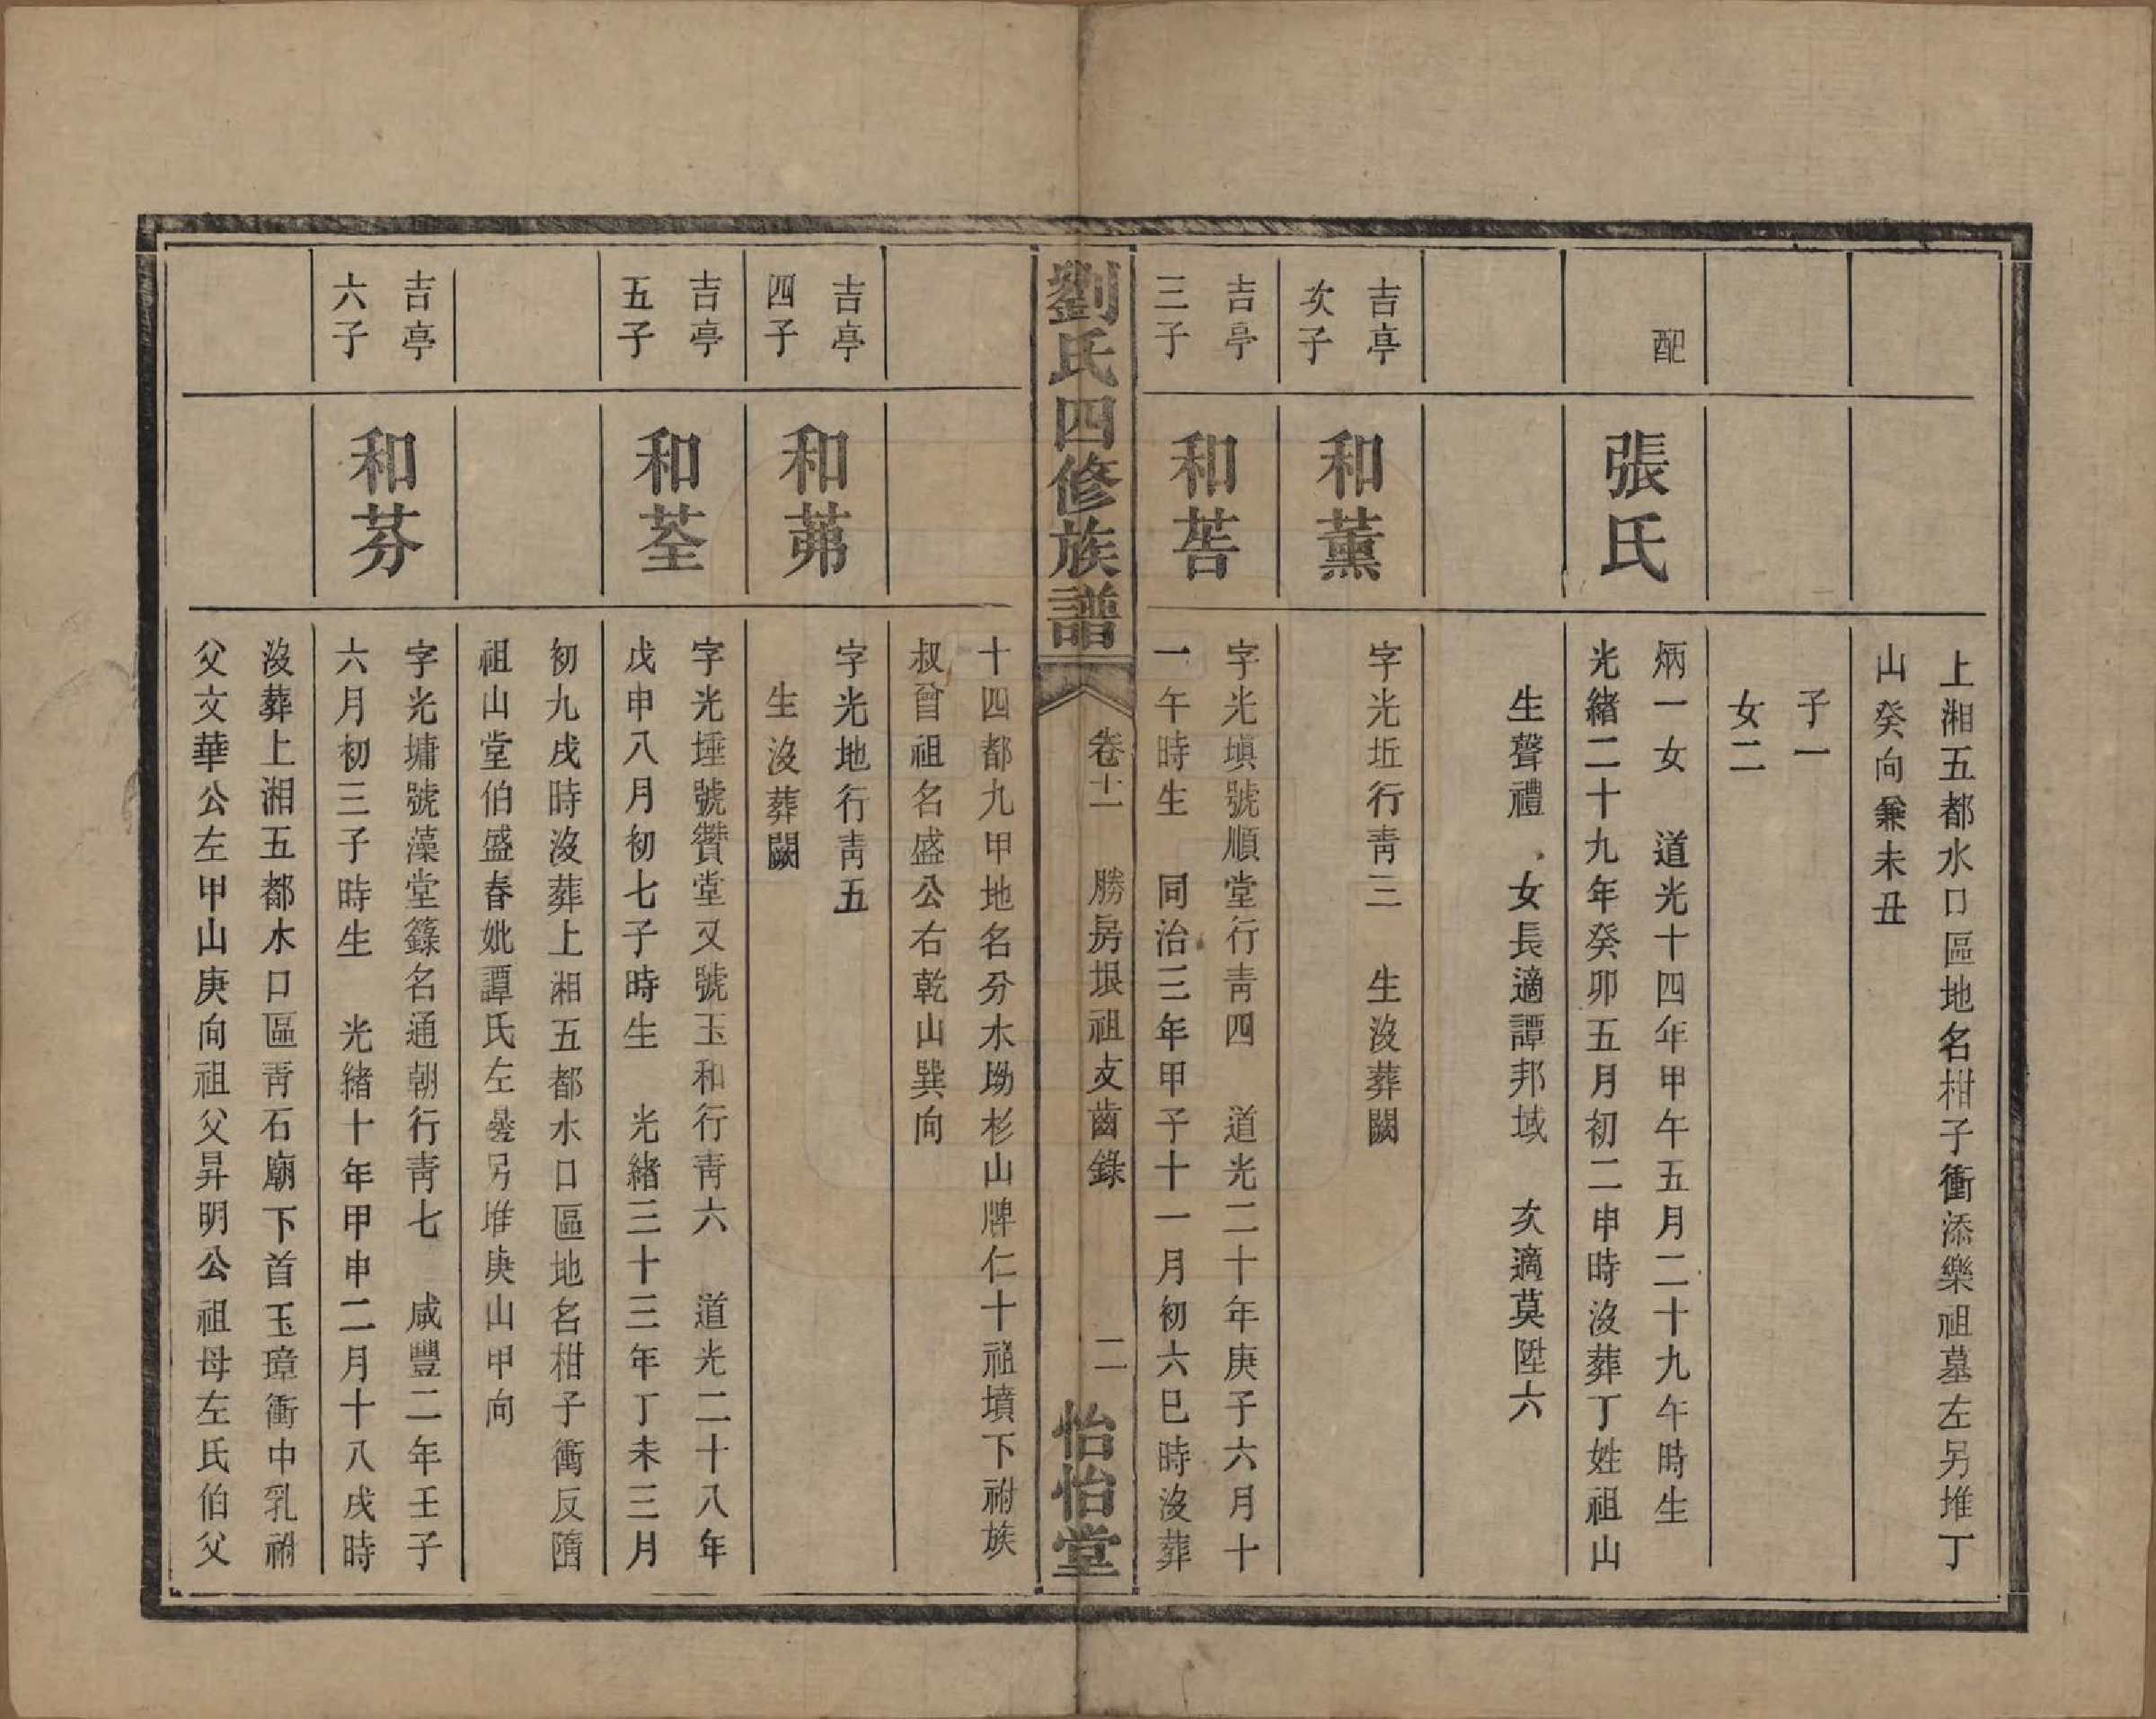 上湘五都水口區地名柑子衝添樂祖墓左另堆丁
山癸向兼未丑
子一
女二
配
張氏
炳一女　道光十四年甲午五月二十九午時生
光緒二十九年癸卯五月初二申時沒葬丁姓祖山
生聲禮　女長適譚邦域　次適莫陞六
吉亭
次子
和薰
字光坵行靑三　生沒葬闕
吉亭
三子
和萻
字光塡號順堂行靑四　道光二十年庚子六月十
一午時生　同治三年甲子十一月初六巳時沒葬
劉氏四修族譜
卷十二　勝房垠祖支齒錄
二
怡怡堂
十四都九甲地名分水坳杉山牌仁十祖墳下祔族
叔曾祖名盛公右乾山巽向
吉亭
四子
和茀
字光地行靑五
生沒葬闕
吉亭
五子
和荃
字光埵號贊堂又號玉和行靑六　道光二十八年
戊申八月初七子時生　光緒三十三年丁未三月
初九戌時沒葬上湘五都水口區地名柑子衝反隋
祖山堂伯盛春妣譚氏左塋另堆庚山甲向
吉亭
六子
和芬
字光墉號藻堂籙名通朝行靑七　咸豐二年壬子
六月初三子時生　光緒十年甲申二月十八戌時
沒葬上湘五都水口區靑石廟下首玉璋衝中乳祔
父文華公左甲山庚向祖父昇明公祖母左氏伯父